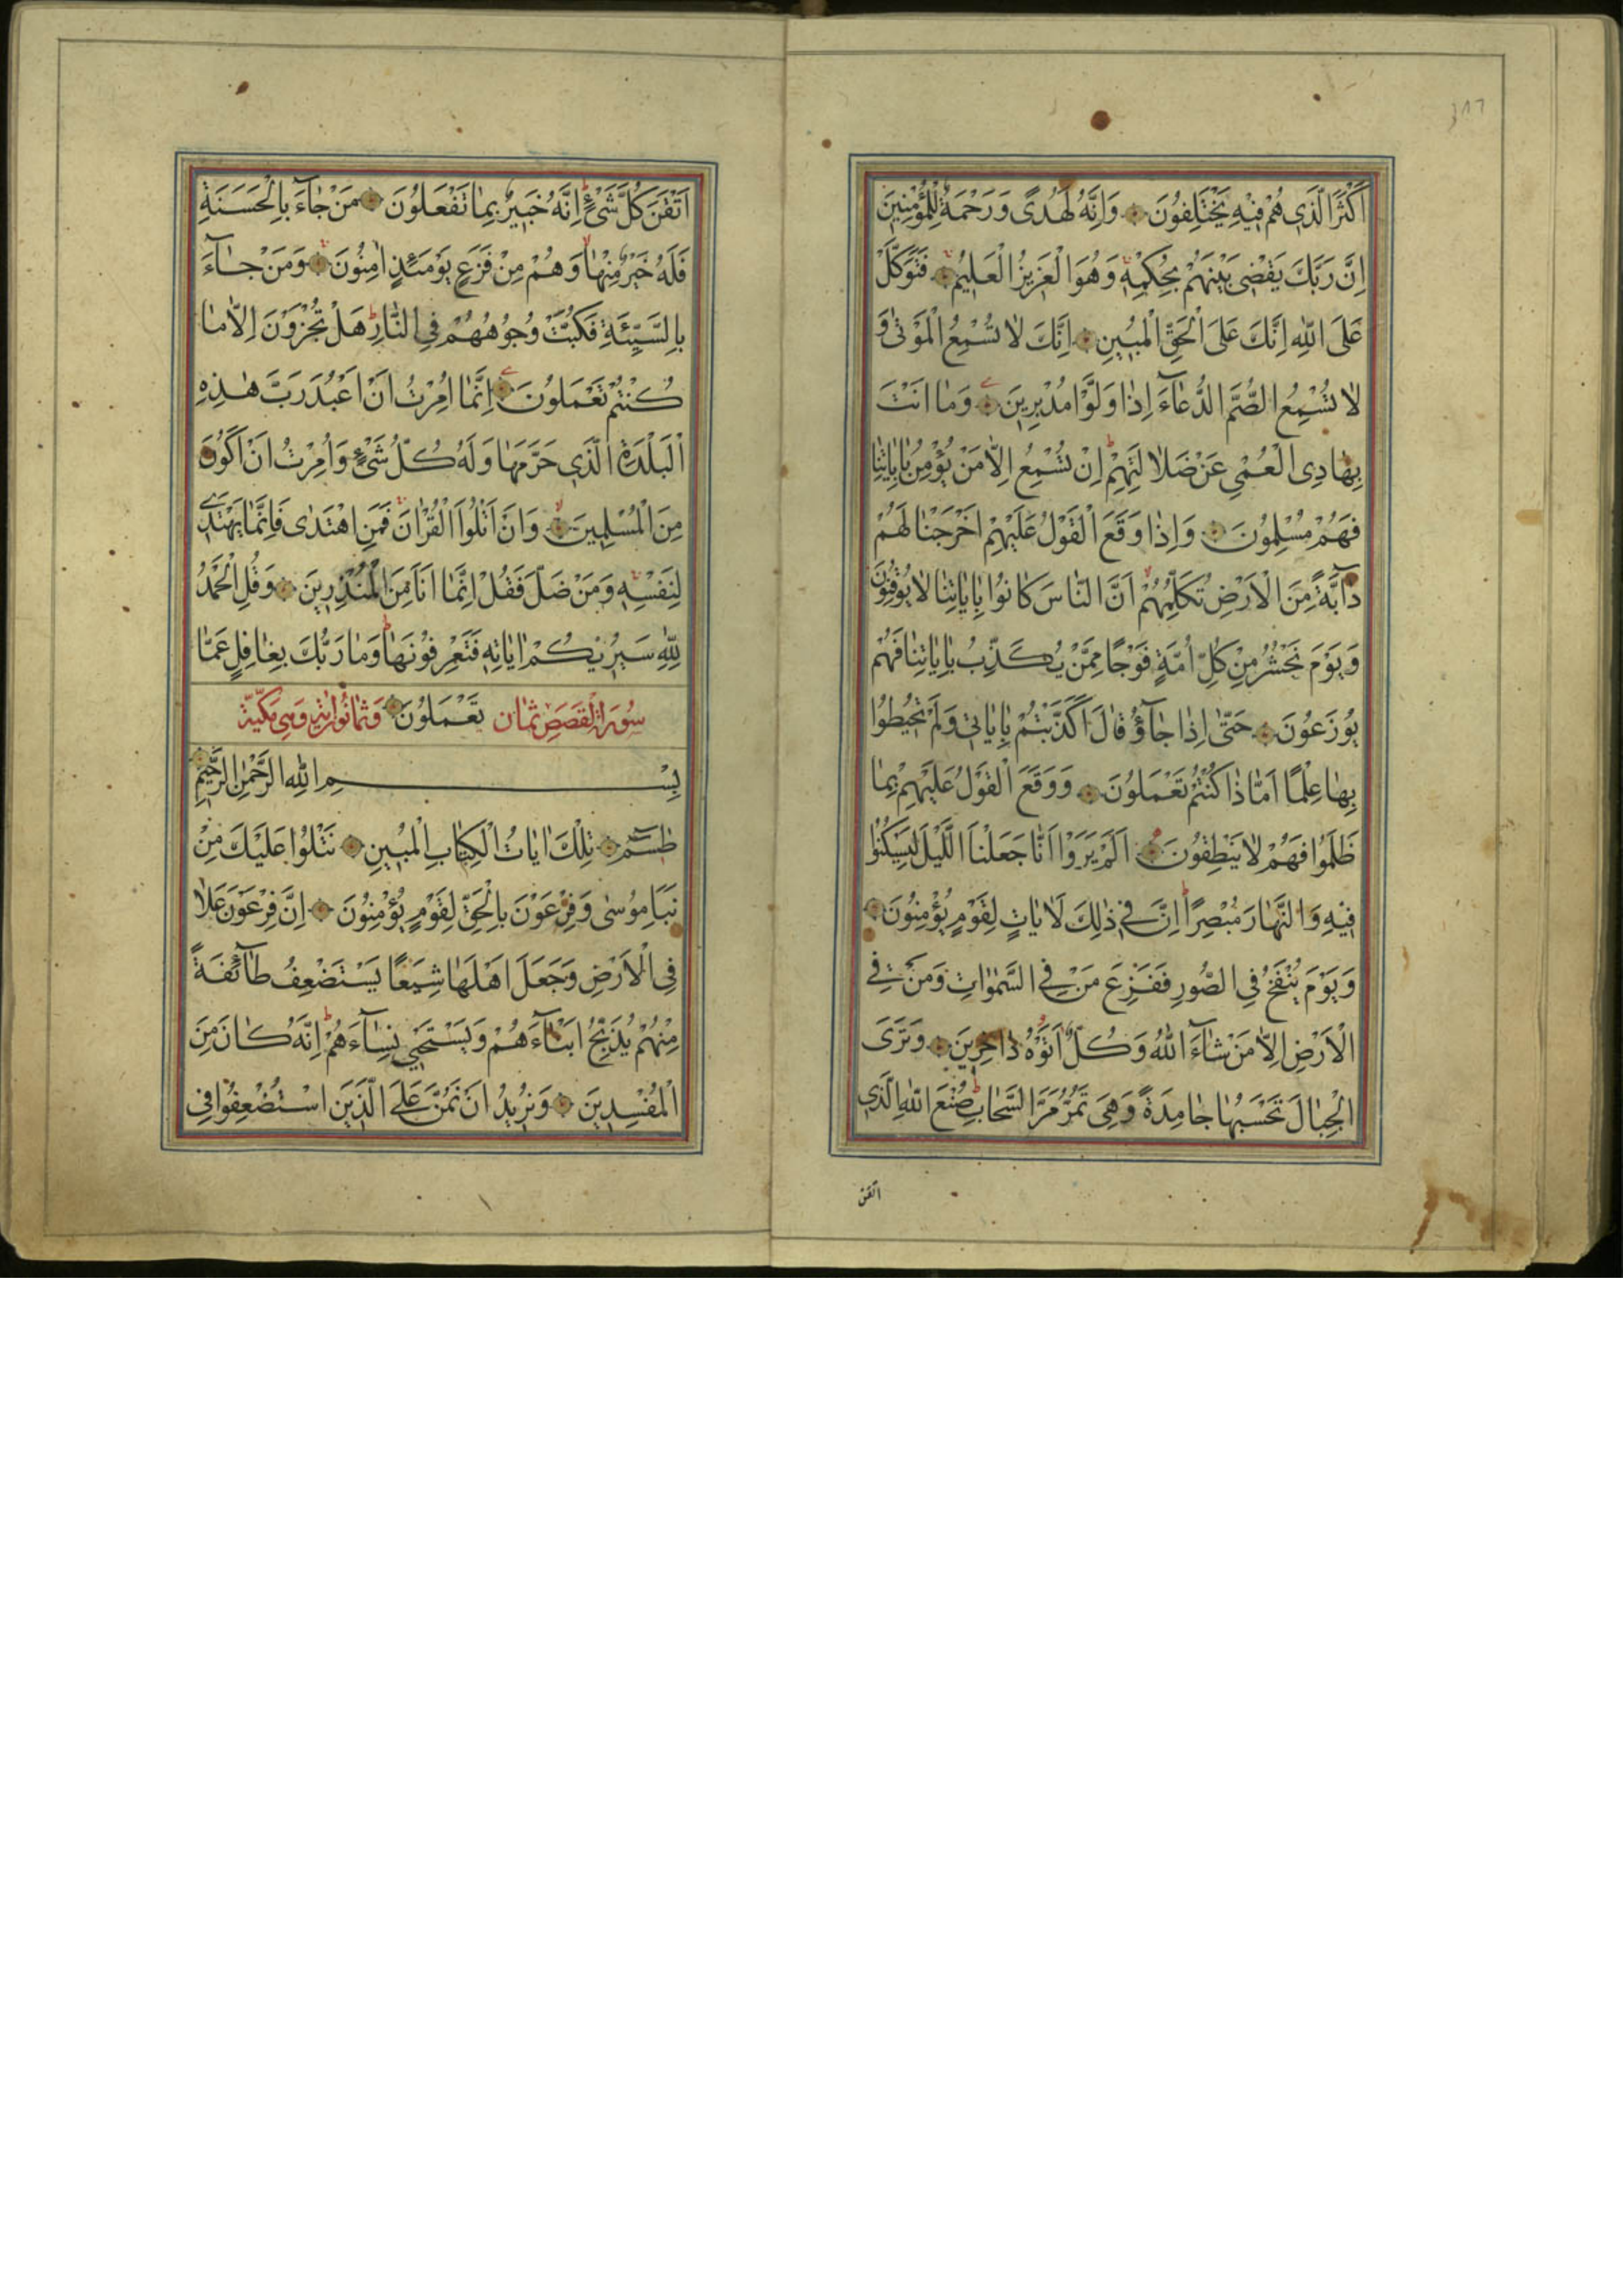 ٣٨٦
اَكْثَرَ الَّذِي هُمْ فِيْهِ يَخْتَلِفُونَ وَاِنَّهُ لَهُدًى وَرَحْمَةٌ لِلْمُؤْمِنِينَ
اِنَّ رَبَّكَ يَقْضِي بَيْنَهُمْ بِحُكْمِهِ وَهُوَ الْعَزِيزُ الْعَلِيمُ فَتَوَكَّلْ
عَلَى اللّٰهِ اِنَّكَ عَلَى الْحَقِّ الْمُبِينِ اِنَّكَ لَا تُسْمِعُ الْمَوْتٰى وَ
لَا تُسْمِعُ الصُّمَّ الدُّعَآءَ اِذَا وَلَّوْا مُدْبِرِينَ وَمَا اَنْتَ
بِهَادِي الْعُمْيِ عَنْ ضَلَالَتِهِمْ اِنْ تُسْمِعُ اِلَّا مَنْ يُؤْمِنُ بِاٰيَاتِنَا
فَهُمْ مُسْلِمُونَ وَاِذَا وَقَعَ الْقَوْلُ عَلَيْهِمْ اَخْرَجْنَا لَهُمْ
دَآبَّةً مِنَ الْاَرْضِ تُكَلِّمُهُمْ اَنَّ النَّاسَ كَانُوا بِاٰيَاتِنَا لَا يُوقِنُونَ
وَيَوْمَ نَحْشُرُ مِنْ كُلِّ اُمَّةٍ فَوْجًا مِمَّنْ يُكَذِّبُ بِاٰيَاتِنَا فَهُمْ
يُوزَعُونَ حَتّٰى اِذَا جَآؤُ قَالَ اَكَذَّبْتُمْ بِاٰيَاتِي وَلَمْ تُحِيطُوا
بِهَا عِلْمًا اَمَّا ذَا كُنْتُمْ تَعْمَلُونَ وَوَقَعَ الْقَوْلُ عَلَيْهِمْ بِمَا
ظَلَمُوا فَهُمْ لَا يَنْطِقُونَ اَلَمْ يَرَوْا اَنَّا جَعَلْنَا اللَّيْلَ لِيَسْكُنُوا
فِيْهِ وَالنَّهَارَ مُبْصِرًا اِنَّ فِي ذٰلِكَ لَاٰيَاتٍ لِقَوْمٍ يُؤْمِنُونَ
وَيَوْمَ يُنْفَخُ فِي الصُّورِ فَفَزِعَ مَنْ فِي السَّمٰوَاتِ وَمَنْ فِي
الْاَرْضِ اِلَّا مَنْ شَآءَ اللّٰهُ وَكُلٌّ اَتَوْهُ دَاخِرِينَ وَتَرَى
الْجِبَالَ تَحْسَبُهَا جَامِدَةً وَهِيَ تَمُرُّ مَرَّ السَّحَابِ صُنْعَ اللّٰهِ الَّذِي
اتقن
اَتْقَنَ كُلَّ شَيْءٍ اِنَّهُ خَبِيرٌ بِمَا تَفْعَلُونَ مَنْ جَآءَ بِالْحَسَنَةِ
فَلَهُ خَيْرٌ مِنْهَا وَهُمْ مِنْ فَزَعٍ يَوْمَئِذٍ اٰمِنُونَ وَمَنْ جَآءَ
بِالسَّيِّئَةِ فَكُبَّتْ وُجُوهُهُمْ فِي النَّارِ هَلْ تُجْزَوْنَ اِلَّا مَا
كُنْتُمْ تَعْمَلُونَ اِنَّمَا اُمِرْتُ اَنْ اَعْبُدَ رَبَّ هٰذِهِ
الْبَلْدَةِ الَّذِي حَرَّمَهَا وَلَهُ كُلُّ شَيْءٍ وَاُمِرْتُ اَنْ اَكُونَ
مِنَ الْمُسْلِمِينَ وَاَنْ اَتْلُوَا الْقُرْاٰنَ فَمَنِ اهْتَدٰى فَاِنَّمَا يَهْتَدِي
لِنَفْسِهِ وَمَنْ ضَلَّ فَقُلْ اِنَّمَا اَنَا مِنَ الْمُنْذِرِينَ وَقُلِ الْحَمْدُ
لِلّٰهِ سَيُرِيْكُمْ اٰيَاتِهِ فَتَعْرِفُونَهَا وَمَا رَبُّكَ بِغَافِلٍ عَمَّا
سُورَةُ الْقَصَصِ ثَمَان تَعْمَلُونَ وَثَمَانُونَ اٰيَة وَهِيَ مَكِّيَّة
بِسْمِ اللّٰهِ الرَّحْمٰنِ الرَّحِيمِ
طٰسٓمٓ تِلْكَ اٰيَاتُ الْكِتَابِ الْمُبِينِ نَتْلُوا عَلَيْكَ مِنْ
نَبَاِ مُوسٰى وَفِرْعَوْنَ بِالْحَقِّ لِقَوْمٍ يُؤْمِنُونَ اِنَّ فِرْعَوْنَ عَلَا
فِي الْاَرْضِ وَجَعَلَ اَهْلَهَا شِيَعًا يَسْتَضْعِفُ طَآئِفَةً
مِنْهُمْ يُذَبِّحُ اَبْنَآءَهُمْ وَيَسْتَحْيِي نِسَآءَهُمْ اِنَّهُ كَانَ مِنَ
الْمُفْسِدِينَ وَنُرِيدُ اَنْ نَمُنَّ عَلَى الَّذِينَ اسْتُضْعِفُوا فِي